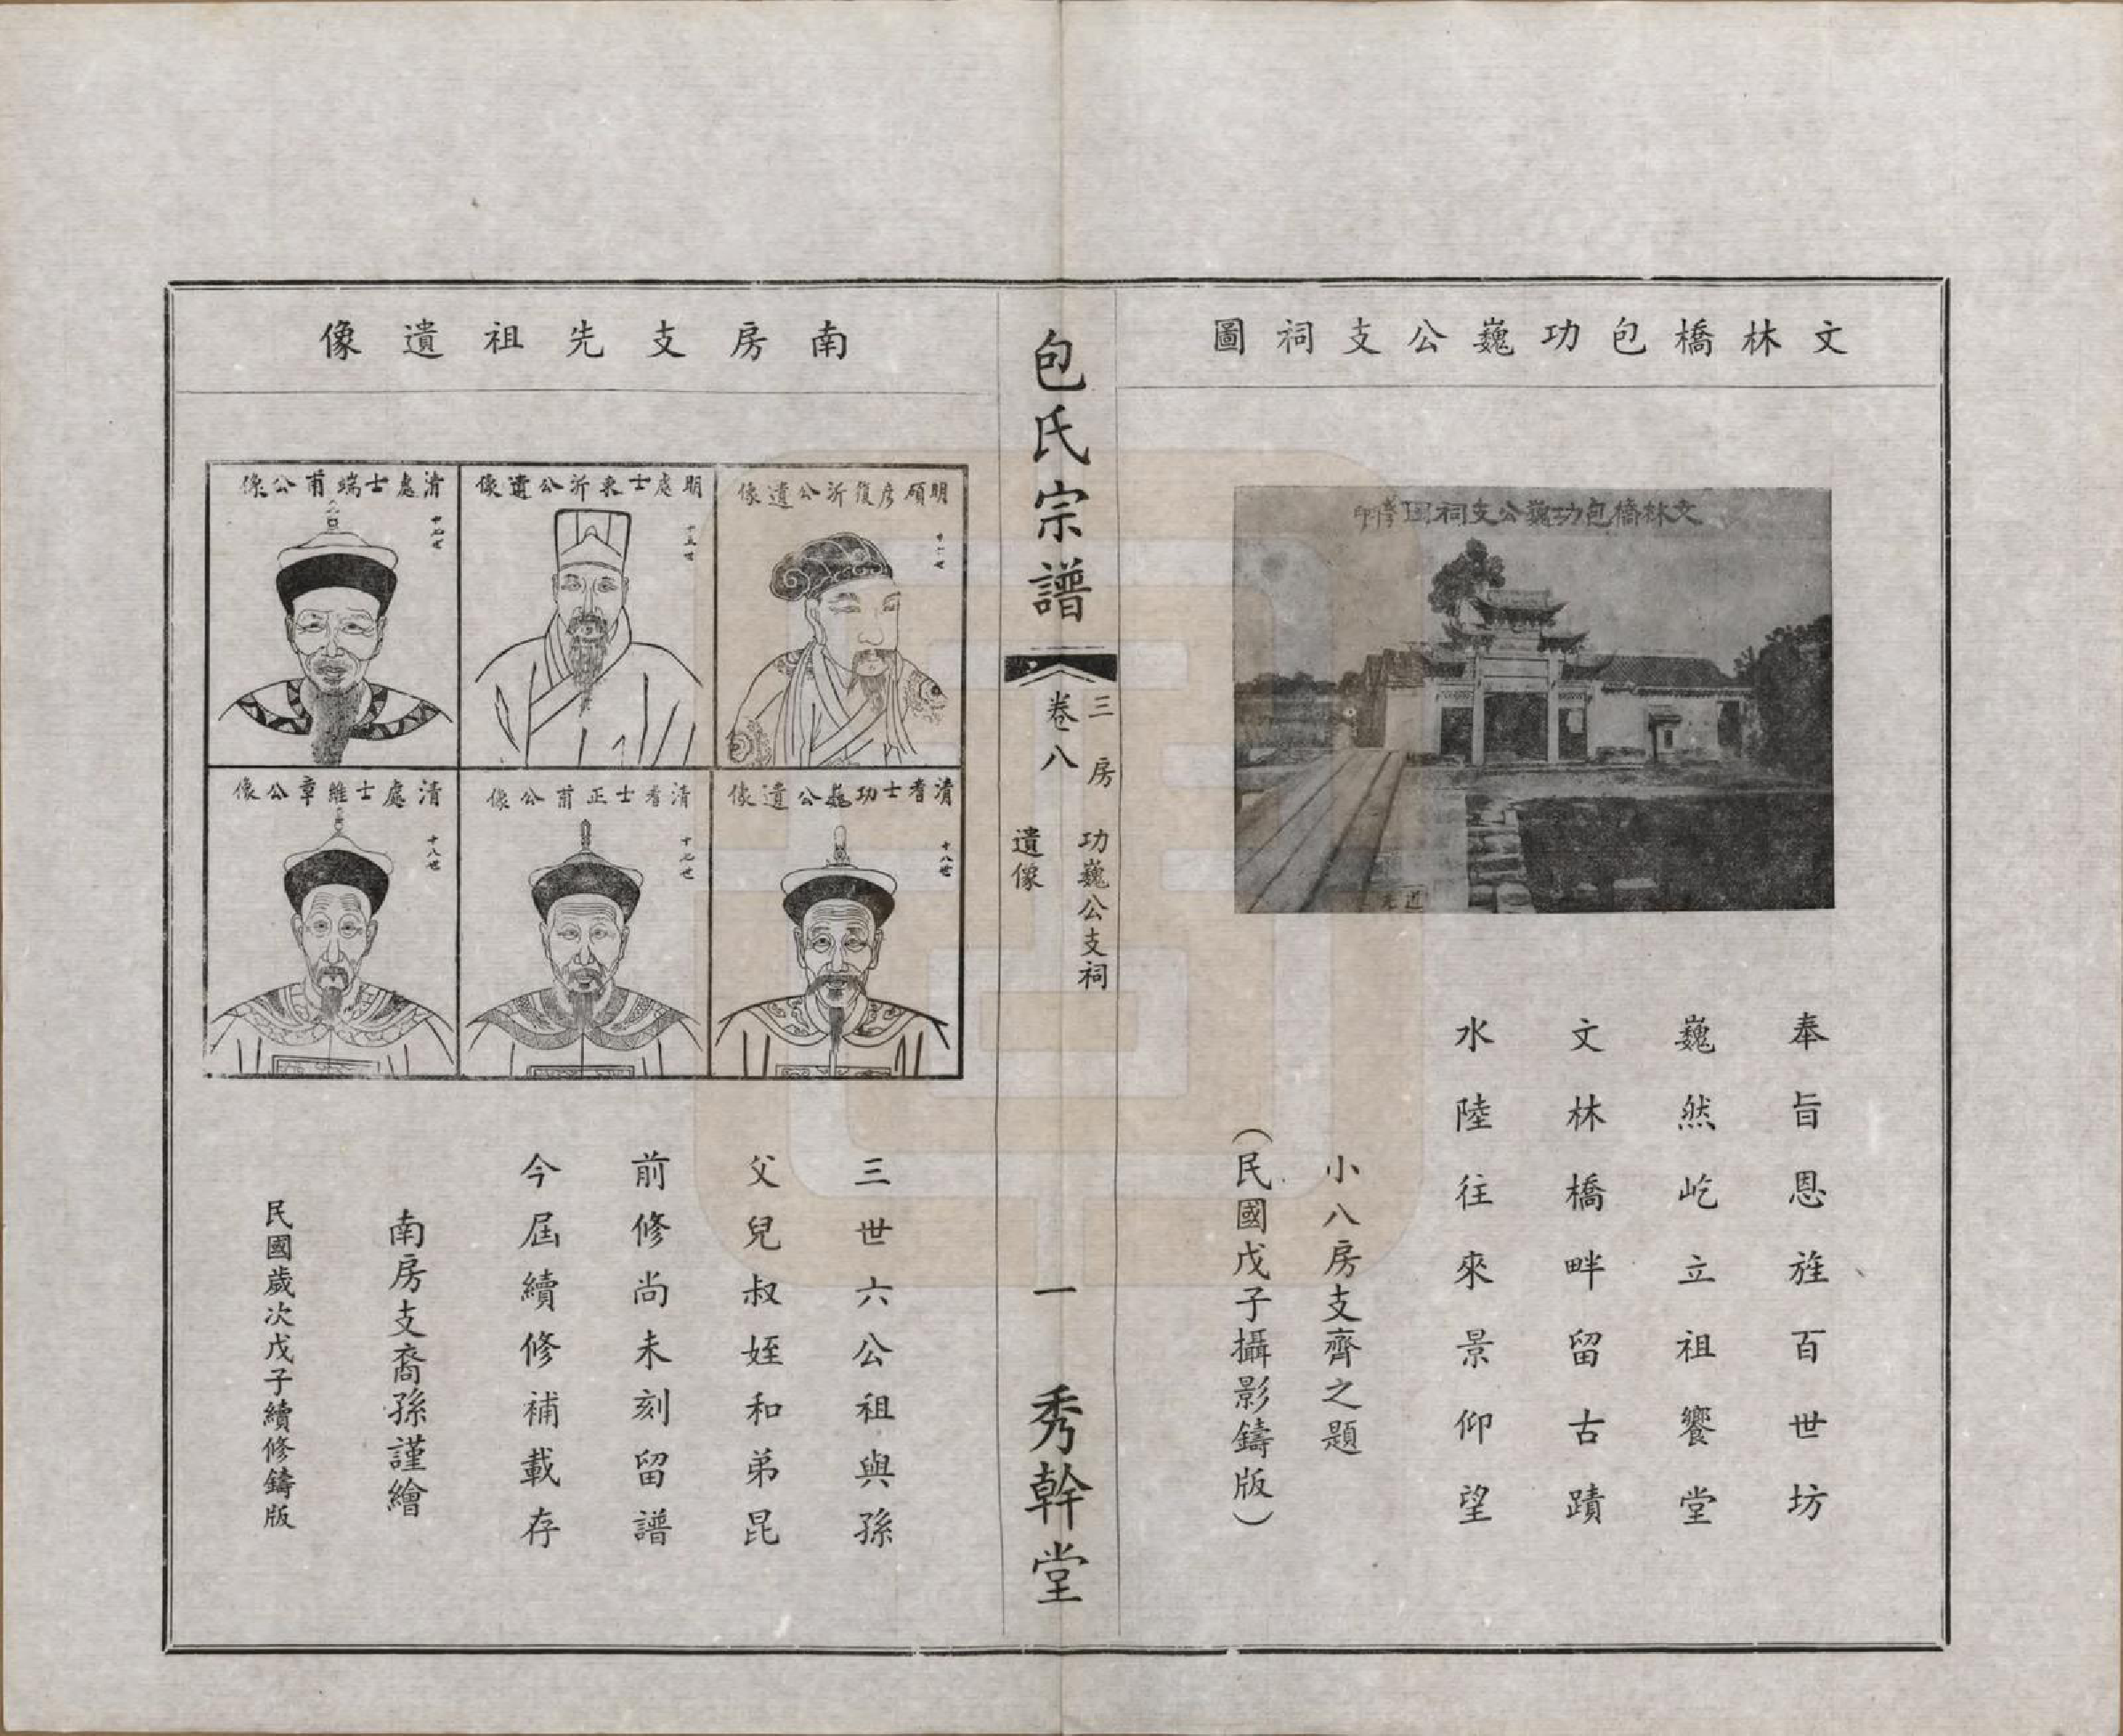 文林橋包功巍公支祠圖
文林橋包功巍公支祠圖
奉旨恩旌百世坊
巍然屹立祖饗堂
文林橋畔留古蹟
水陸往來景仰望
小八房支齊之題
（民國戊子攝影鑄版）
包氏宗譜
卷八
三房
功巍公支祠
遺像
一
秀幹堂
南房支先祖遺像
明碩彦復沂公遺像
明處士東沂公遺像
十五世
清處士端甫公像
十七世
清耆士功巍公遺像
十八世
清耆士正甫公像
十七世
清處士維章公像
十八世
三世六公祖與孫
父兒叔姪和弟昆
前修尚未刻留譜
今屆續修補載存
南房支裔孫謹繪
民國歲次戊子續修鑄版